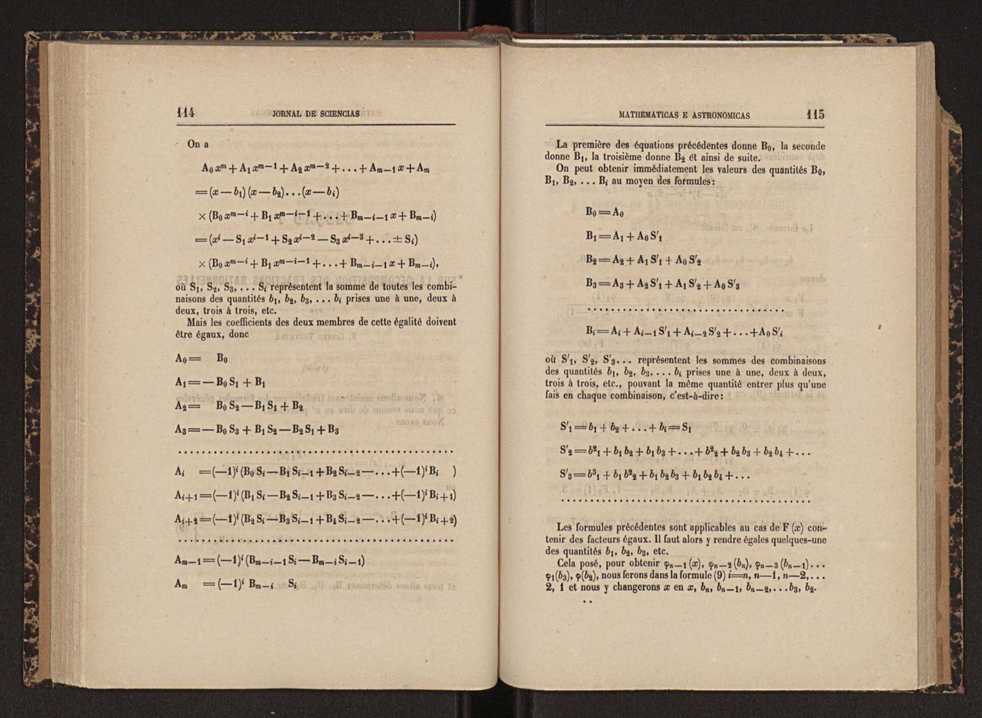 114 JORNAL DE SCIENCIAS
On a
A₀xᵐ + A₁xᵐ⁻¹ + A₂xᵐ⁻² + . . . + Aₘ₋₁x + Aₘ
= (x — b₁) (x — b₂). . . (x — bᵢ)
× (B₀xᵐ⁻ⁱ + B₁xᵐ⁻ⁱ⁻¹ + . . . + Bₘ₋ᵢ₋₁x + Bₘ₋ᵢ)
= (xⁱ — S₁xⁱ⁻¹ + S₂xⁱ⁻² — S₃xⁱ⁻³ + . . . ± Sᵢ)
× (B₀xᵐ⁻ⁱ + B₁xᵐ⁻ⁱ⁻¹ + . . . + Bₘ₋ᵢ₋₁x + Bₘ₋ᵢ),
où S₁, S₂, S₃, . . . Sᵢ représentent la somme de toutes les combi-
naisons des quantités b₁, b₂, b₃, . . . bᵢ prises une à une, deux à
deux, trois à trois, etc.
Mais les coefficients des deux membres de cette égalité doivent
être égaux, donc
A₀ = B₀
A₁ = — B₀S₁ + B₁
A₂ = B₀S₂ — B₁S₁ + B₂
A₃ = — B₀S₃ + B₁S₂ — B₂S₁ + B₃
. . . . . . . . . . . . . . . . . . . . . . . . . . . . . .
Aᵢ = (—1)ⁱ (B₀Sᵢ — B₁Sᵢ₋₁ + B₂Sᵢ₋₂ — . . . + (—1)ⁱBᵢ )
Aᵢ₊₁ = (—1)ⁱ (B₁Sᵢ — B₂Sᵢ₋₁ + B₃Sᵢ₋₂ — . . . + (—1)ⁱBᵢ₊₁)
Aᵢ₊₂ = (—1)ⁱ (B₂Sᵢ — B₃Sᵢ₋₁ + B₄Sᵢ₋₂ — . . . + (—1)ⁱBᵢ₊₂)
. . . . . . . . . . . . . . . . . . . . . . . . . . . . . .
Aₘ₋₁ = (—1)ⁱ (Bₘ₋ᵢ₋₁Sᵢ — Bₘ₋ᵢSᵢ₋₁)
Aₘ = (—1)ⁱ Bₘ₋ᵢ Sᵢ
MATHEMATICAS E ASTRONOMICAS 115
La première des équations précédentes donne B₀, la seconde
donne B₁, la troisième donne B₂ et ainsi de suite.
On peut obtenir immédiatement les valeurs des quantités B₀,
B₁, B₂, . . . Bᵢ au moyen des formules:
B₀ = A₀
B₁ = A₁ + A₀S′₁
B₂ = A₂ + A₁S′₁ + A₀S′₂
B₃ = A₃ + A₂S′₁ + A₁S′₂ + A₀S′₃
. . . . . . . . . . . . . . . . . . . . .
Bᵢ = Aᵢ + Aᵢ₋₁S′₁ + Aᵢ₋₂S′₂ + . . . + A₀S′ᵢ
où S′₁, S′₂, S′₃. . . représentent les sommes des combinaisons
des quantités b₁, b₂, b₃, . . . bᵢ prises une à une, deux à deux,
trois à trois, etc., pouvant la même quantité entrer plus qu'une
fais en chaque combinaison, c'est-à-dire:
S′₁ = b₁ + b₂ + . . . + bᵢ = S₁
S′₂ = b²₁ + b₁b₂ + b₁b₃ + . . . + b²₂ + b₂b₃ + b₂b₄ + . . .
S′₃ = b³₁ + b₁b²₂ + b₁b₂b₃ + b₁b₂b₄ + . . .
. . . . . . . . . . . . . . . . . . . . . . . . . . .
Les formules précédentes sont applicables au cas de F (x) con-
tenir des facteurs égaux. Il faut alors y rendre égales quelques-une
des quantités b₁, b₂, b₃, etc.
Cela posé, pour obtenir φₙ₋₁(x), φₙ₋₂(bₙ), φₙ₋₃(bₙ₋₁). . .
φ₁(b₃), φ(b₂), nous ferons dans la formule (9) i=n, n—1, n—2, . . .
2, 1 et nous y changerons x en x, bₙ, bₙ₋₁, bₙ₋₂, . . . b₃, b₂.